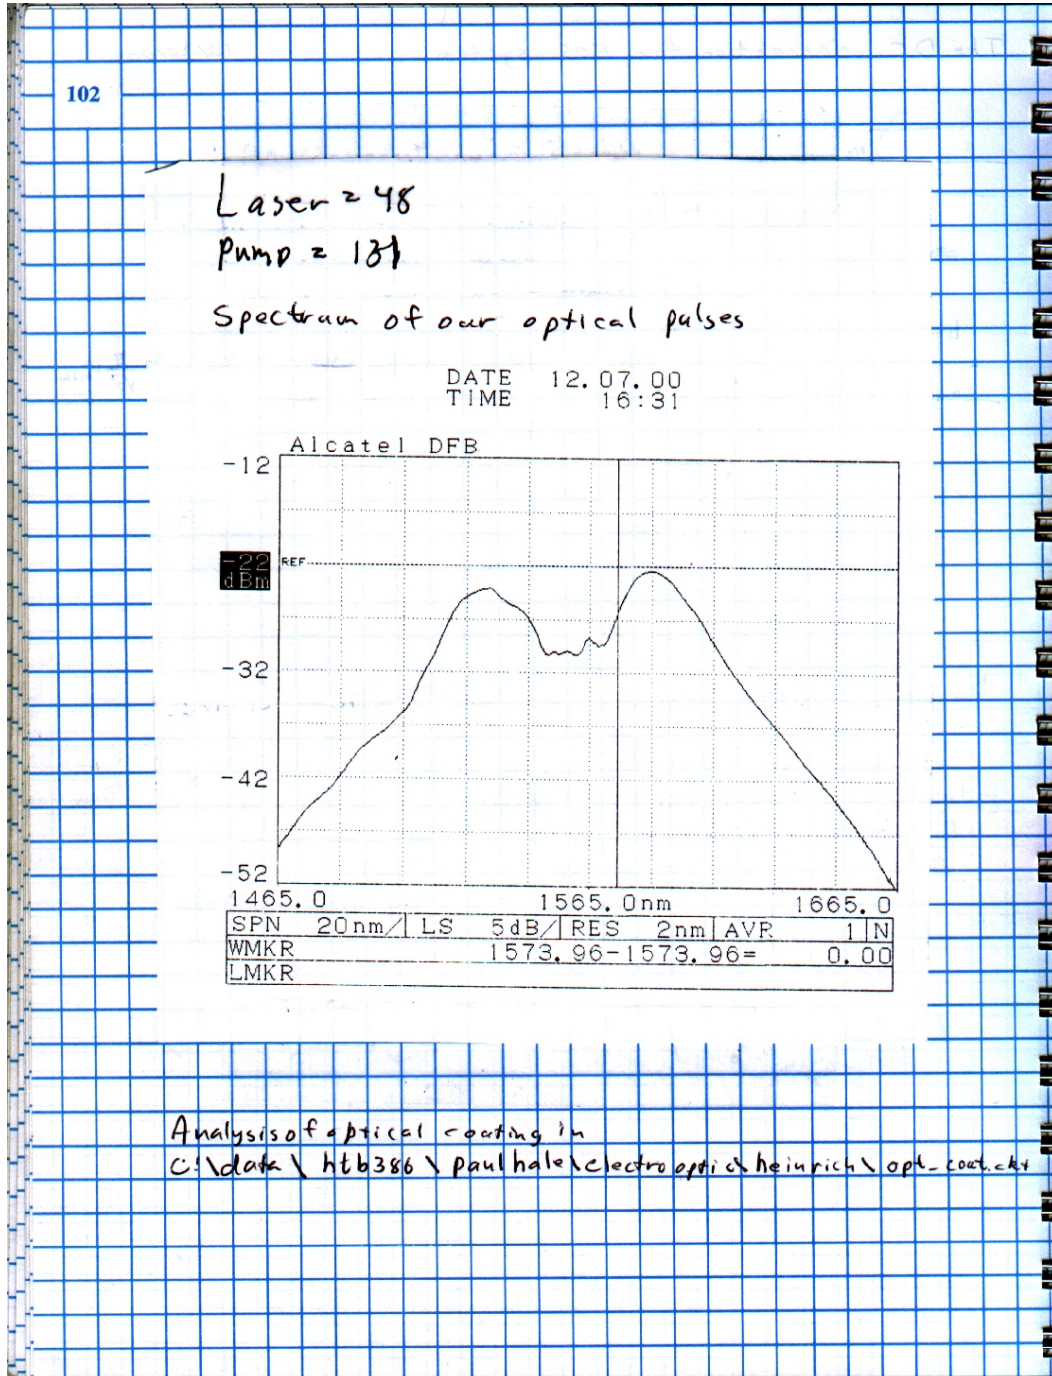 102
Laser = 48
Pump = 131
Spectrum of our optical pulses
DATE 12.07.00
TIME 16:31
Alcatel DFB
-12
-22 REF
dBm
-32
-42
-52
1465.0 1565.0nm 1665.0
SPN 20nm/ LS 5dB/ RES 2nm AVR 1 N
WMKR 1573.96-1573.96= 0.00
LMKR
Analysis of optical coating in
C:\data\htb386\paulhale\electrooptic\heinrich\opt_coat.ckt